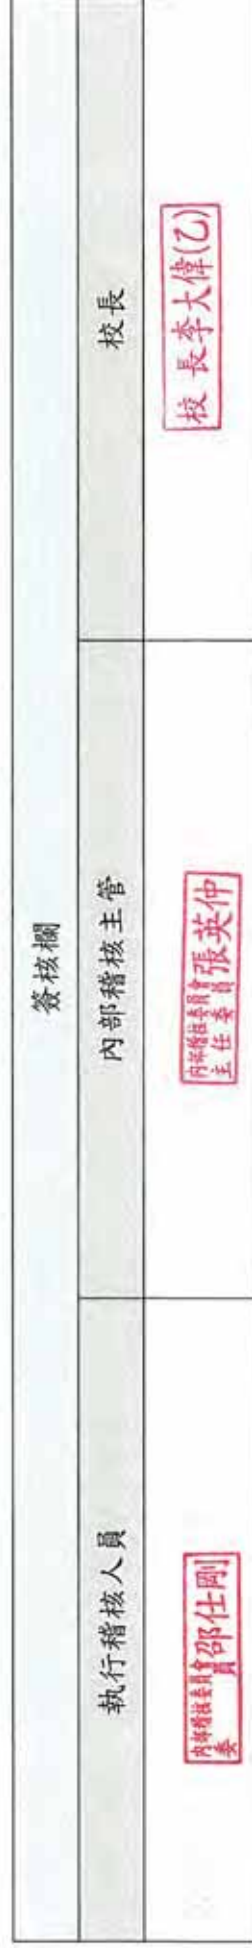 簽核欄
執行稽核人員
內部稽核主管
校長
內部稽核委員會
委員 邵仕剛
內部稽核委員會
主任委員 張英仲
校長李大偉(乙)